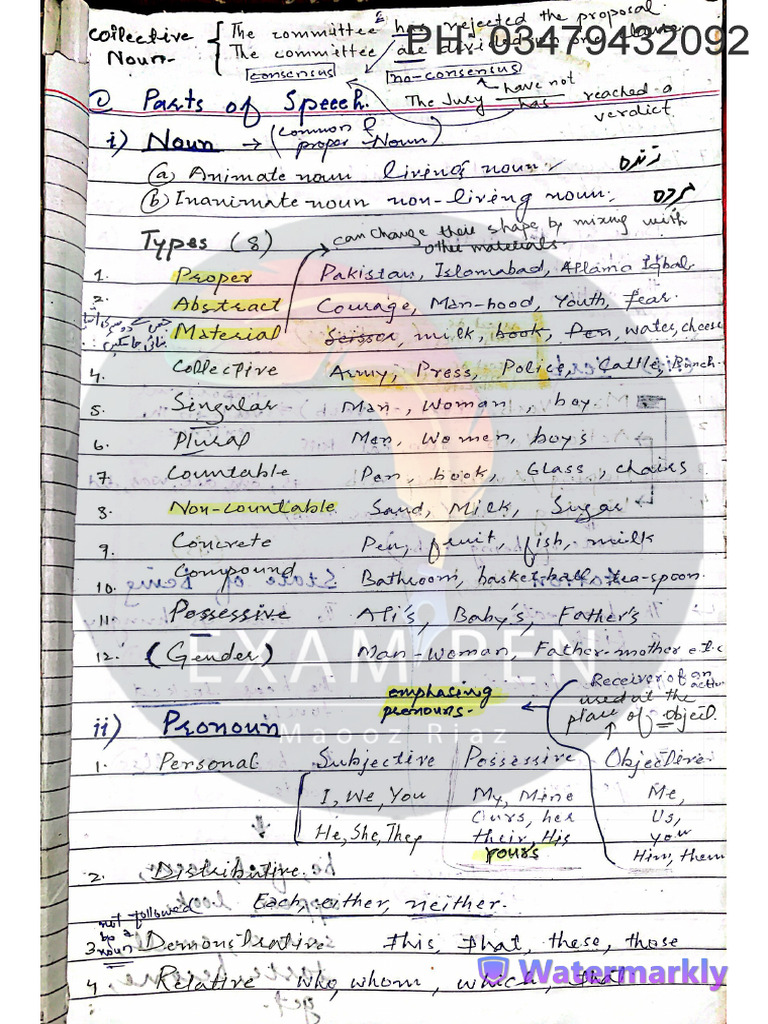 Collective Noun- { The committee has rejected the proposal.
The committee are divided on one clause
PH: 03479432092
consensus no-consensus
Parts of Speech. The Jury have not has reached a verdict
i) Noun → (common & proper Noun)
(a) Animate noun living noun. زندہ
(b) Inanimate noun non-living noun. مردہ
Types (8) can change their shape by mixing with other materials.
1. Proper Pakistan, Islamabad, Allama Iqbal.
2. Abstract Courage, Man-hood, Youth, fear.
Material Scissor, milk, book, Pen, water, cheese
4. Collective Army, Press, Police, Cattle, Bunch.
5. Singular Man, Woman, boy.
6. Plural Men, Women, boy's
7. Countable Pen, book, Glass, chairs
8. Non-countable Sand, Milk, Sugar
9. Concrete Pen, fruit, fish, milk
10. Compound Bathroom, basket ball, tea-spoon.
11. Possessive Ali's, Baby's, Father's
12. (Gender) Man-Woman, Father-mother etc
EXAM PEN
emphasing pronouns.
Receiver of an action
used at the
place of object.
ii) Pronoun
Maooz Riaz
1. Personal Subjective Possessive Objective
I, We, You My, Mine Me,
Ours, her Us,
He, She, They their, His you
yours Him, them
2. Distributive.
Each, either, neither.
not followed by a noun
3. Demonstrative this, that, these, those
4. Relative who, whom, which, that
Watermarkly